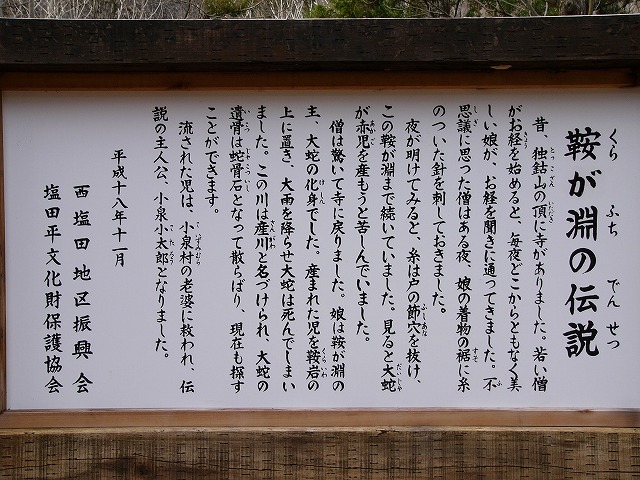 鞍が淵の伝説
昔、独鈷山の頂に寺がありました。若い僧
がお経を始めると、毎夜どこからともなく美
しい娘が、お経を聞きに通ってきました。不
思議に思った僧はある夜、娘の着物の裾に糸
のついた針を刺しておきました。
夜が明けてみると、糸は戸の節穴を抜け、
この鞍が淵まで続いていました。見ると大蛇
が赤児を産もうと苦しんでいました。
僧は驚いて寺に戻りました。娘は鞍が淵の
主、大蛇の化身でした。産まれた児を鞍岩の
上に置き、大雨を降らせ大蛇は死んでしまい
ました。この川は産川と名づけられ、大蛇の
遺骨は蛇骨石となって散らばり、現在も探す
ことができます。
流された児は、小泉村の老婆に救われ、伝
説の主人公、小泉小太郎となりました。
平成十八年十一月
西塩田地区振興会
塩田平文化財保護協会